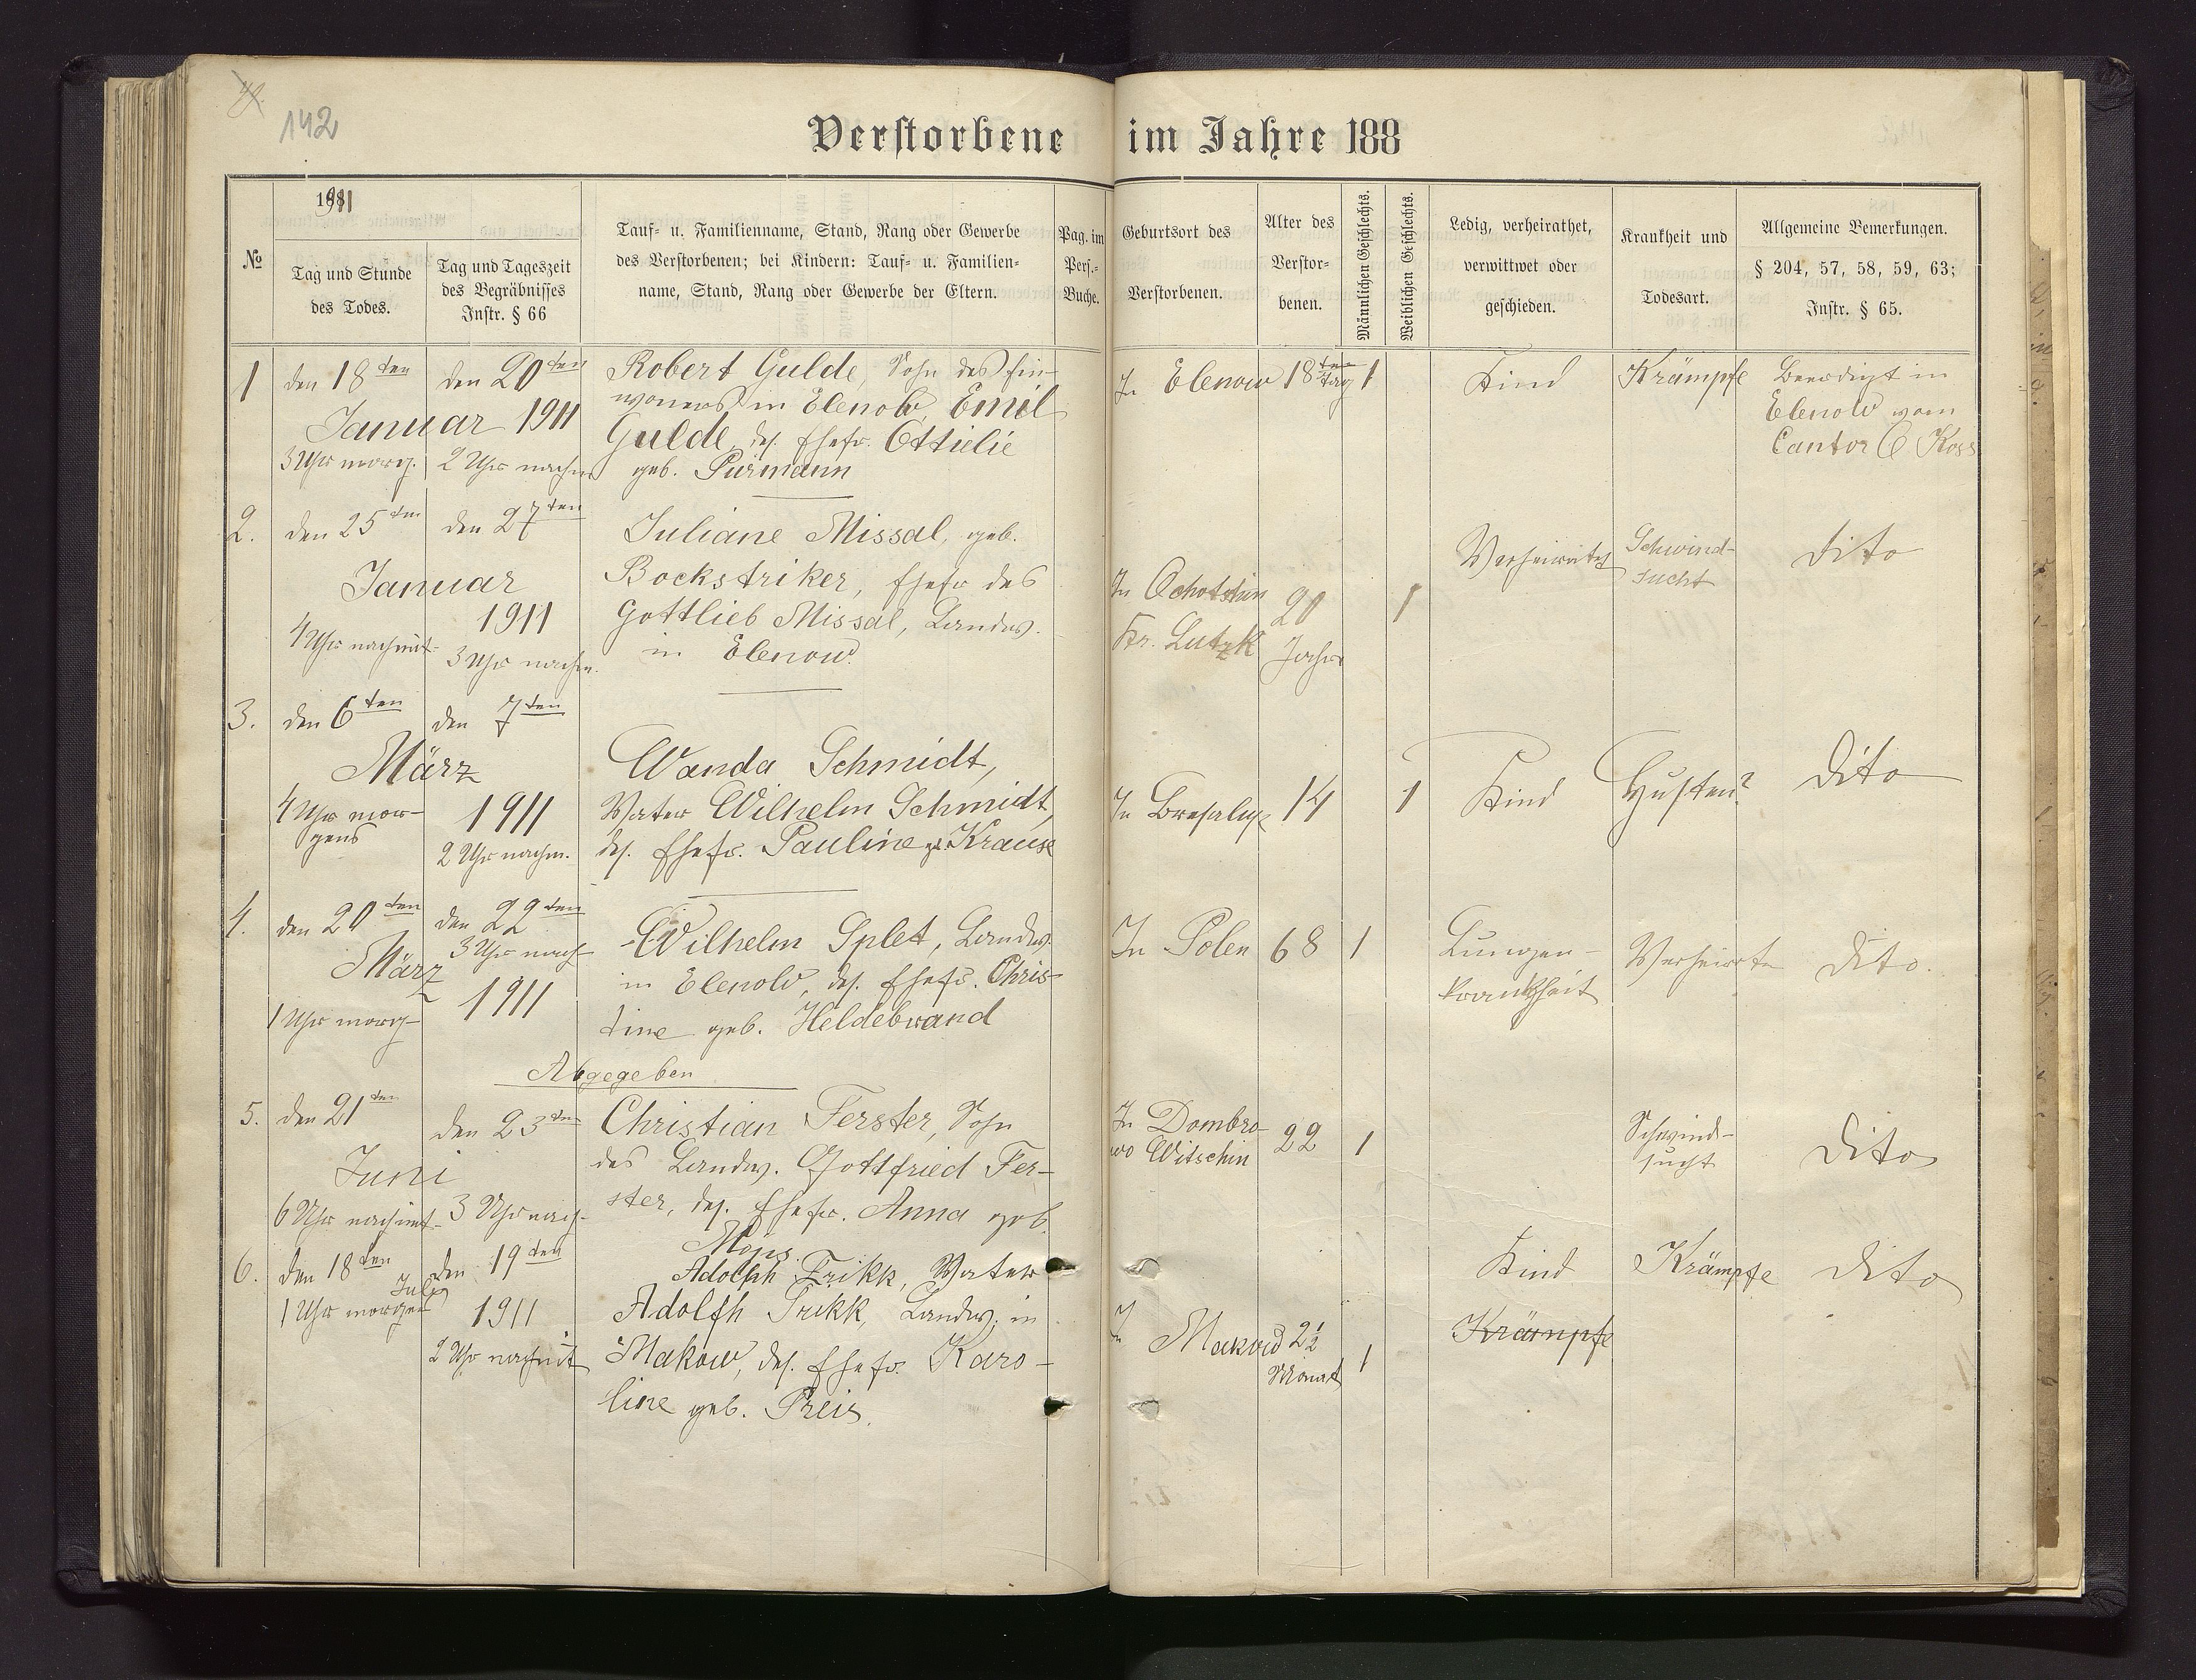 142
Verstorbene im Jahre 188
1911
№
Tag und Stunde
des Todes.
Tag und Tageszeit
des Begräbnisses
Instr. § 66
Tauf- u. Familienname, Stand, Rang oder Gewerbe
des Verstorbenen; bei Kindern: Tauf- u. Familien-
name, Stand, Rang oder Gewerbe der Eltern.
Pag. im
Pers.-
Buche.
Geburtsort des
Verstorbenen.
Alter des
Verstor-
benen.
Männlichen Geschlechts.
Weiblichen Geschlechts.
Ledig, verheirathet,
verwittwet oder
geschieden.
Krankheit und
Todesart.
Allgemeine Bemerkungen.
§ 204, 57, 58, 59, 63;
Instr. § 65.
1 den 18ten den 20ten
Januar 1911
3 Uhr morg. 2 Uhr nachm
Robert Gulde, Sohn des Ein-
woners in Elenow, Emil
Gulde, des. Ehefr. Ottielie
geb. Purmann
In Elenow 18ten Tag 1 Kind Krämpfe
Beerdigt in
Elenow vom
Cantor C Koss
2. den 25ten den 27ten
Januar
1911
4 Uhr nachmit- 3 Uhr nachm.
Juliane Missal, geb.
Bockstriker, Ehefr des
Gottlieb Missal, Landw.
in Elenow.
In Ochotshin
Kr. Lutzk
20
Jahre
1 Verheiratet
Schwind-
sucht
Dito
3. den 6ten den 7ten
März
4 Uhr mor-
gens
1911
2 Uhr nachm.
Wanda Schmidt,
Vater Wilhelm Schmidt,
des. Ehefr. Pauline g. Krause
14 1 Kind Husten? Dito
4. den 20ten den 22ten
3 Uhr nach-
März
1911
1 Uhr morg-
Wilhelm Splet, Landw.
in Elenow, des. Ehefr. Chris-
tine geb. Heldebrand
In Polen 68 1
Lungen-
krankheit
Verheirate Dito.
Abgegeben
5. den 21ten den 23ten
Juni
6 Uhr nachmit- 3 Uhr nach-
Christian Ferster, Sohn
des Landw. Gottfried Fer-
ster, des. Ehefr. Anna geb.
Mops.
In Dombro-
wo Witschin
22 1
Schwind-
sucht
Dito
6. den 18ten den 19ten
July
1 Uhr morgens 1911
2 Uhr nachmit
Adolph Frikk, Vater
Adolfh Frikk, Landw. in
Makow, des. Ehefr. Karo-
line geb. Preis.
In Makow 2½
Monat
1 Kind Krämpfe Dito
Krämpfe